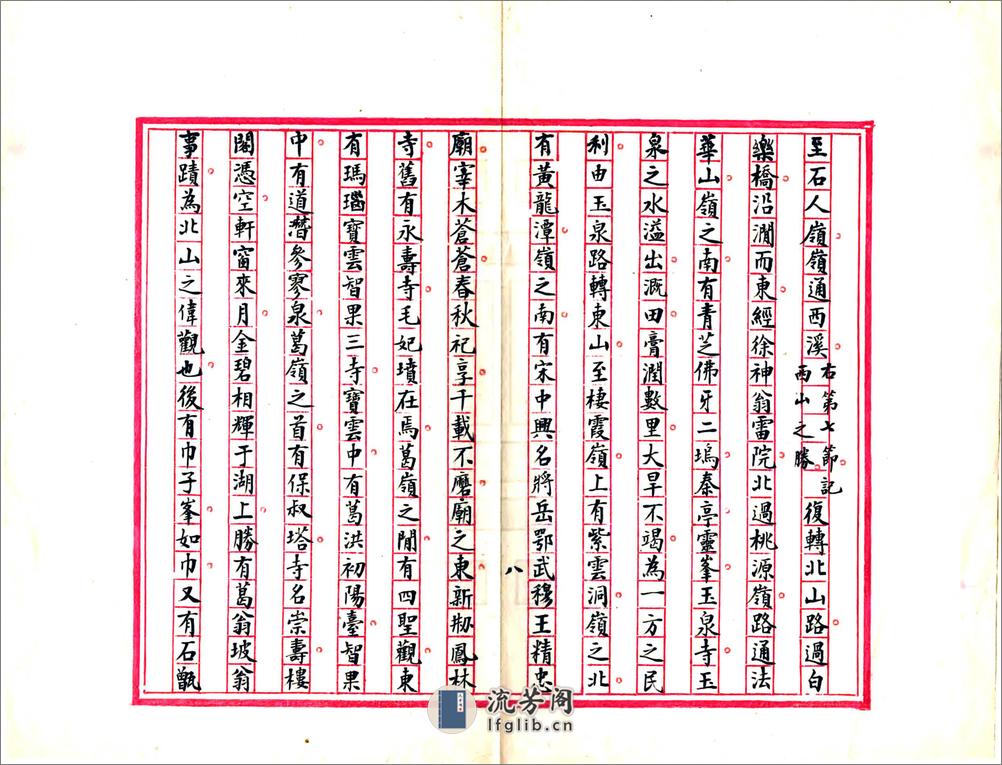 至石人嶺嶺通西溪右第七節記西山之勝復轉北山路過白
樂橋沿澗而東經徐神翁雷院北過桃源嶺路通法
華山嶺之南有青芝佛牙二塢秦亭靈峯玉泉寺玉
泉之水溢出溉田膏潤數里大旱不竭為一方之民
利由玉泉路轉東山至棲霞嶺上有紫雲洞嶺之北
有黃龍潭嶺之南有宋中興名將岳鄂武穆王精忠
八
廟宰木蒼蒼春秋祀享千載不磨廟之東新剏鳳林
寺舊有永壽寺毛妃墳在焉葛嶺之閒有四聖觀東
有瑪瑙寶雲智果三寺寶雲中有葛洪初陽臺智果
中有道潛參寥泉葛嶺之首有保叔塔寺名崇壽樓
閣憑空軒窗來月金碧相輝于湖上勝有葛翁坡翁
事蹟為北山之偉觀也後有巾子峯如巾又有石甑
流芳阁
lfglib.cn